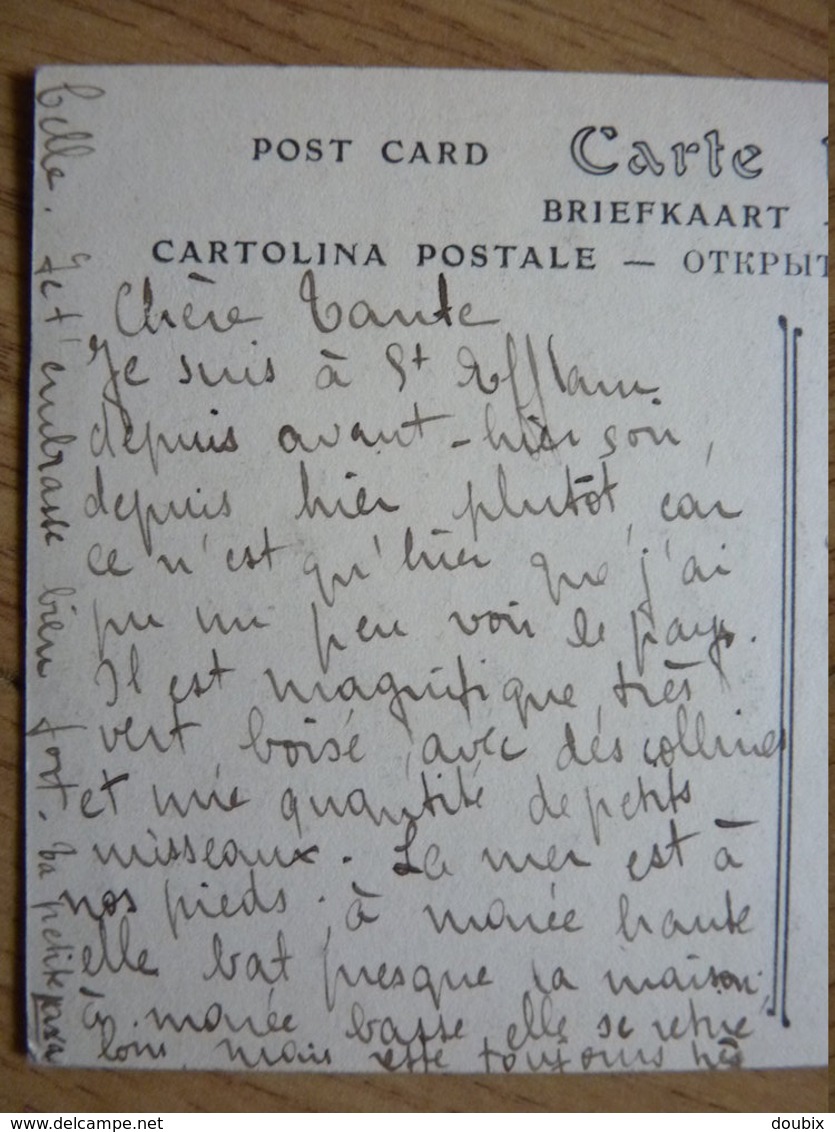 POST CARD Carte
BRIEFKAART
CARTOLINA POSTALE — ОТКРЫТ
Chère Tante
Je suis à St Efflam
depuis avant-hier soir,
depuis hier plutôt, car
ce n'est qu'hier que j'ai
pu un peu voir le pays.
Il est magnifique, très
vert, boisé, avec des collines
et une quantité de petits
ruisseaux. La mer est à
nos pieds ; à marée haute
elle bat presque la maison,
à marée basse elle se retire
loin, mais reste toujours très
belle. Je t'embrasse bien fort. Ta petite
delcampe.net
doubix